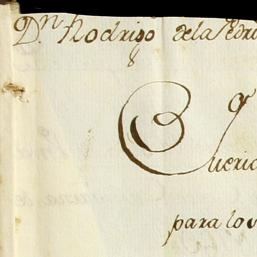 Dⁿ Rodrigo de la Pedr
Queri
para lo